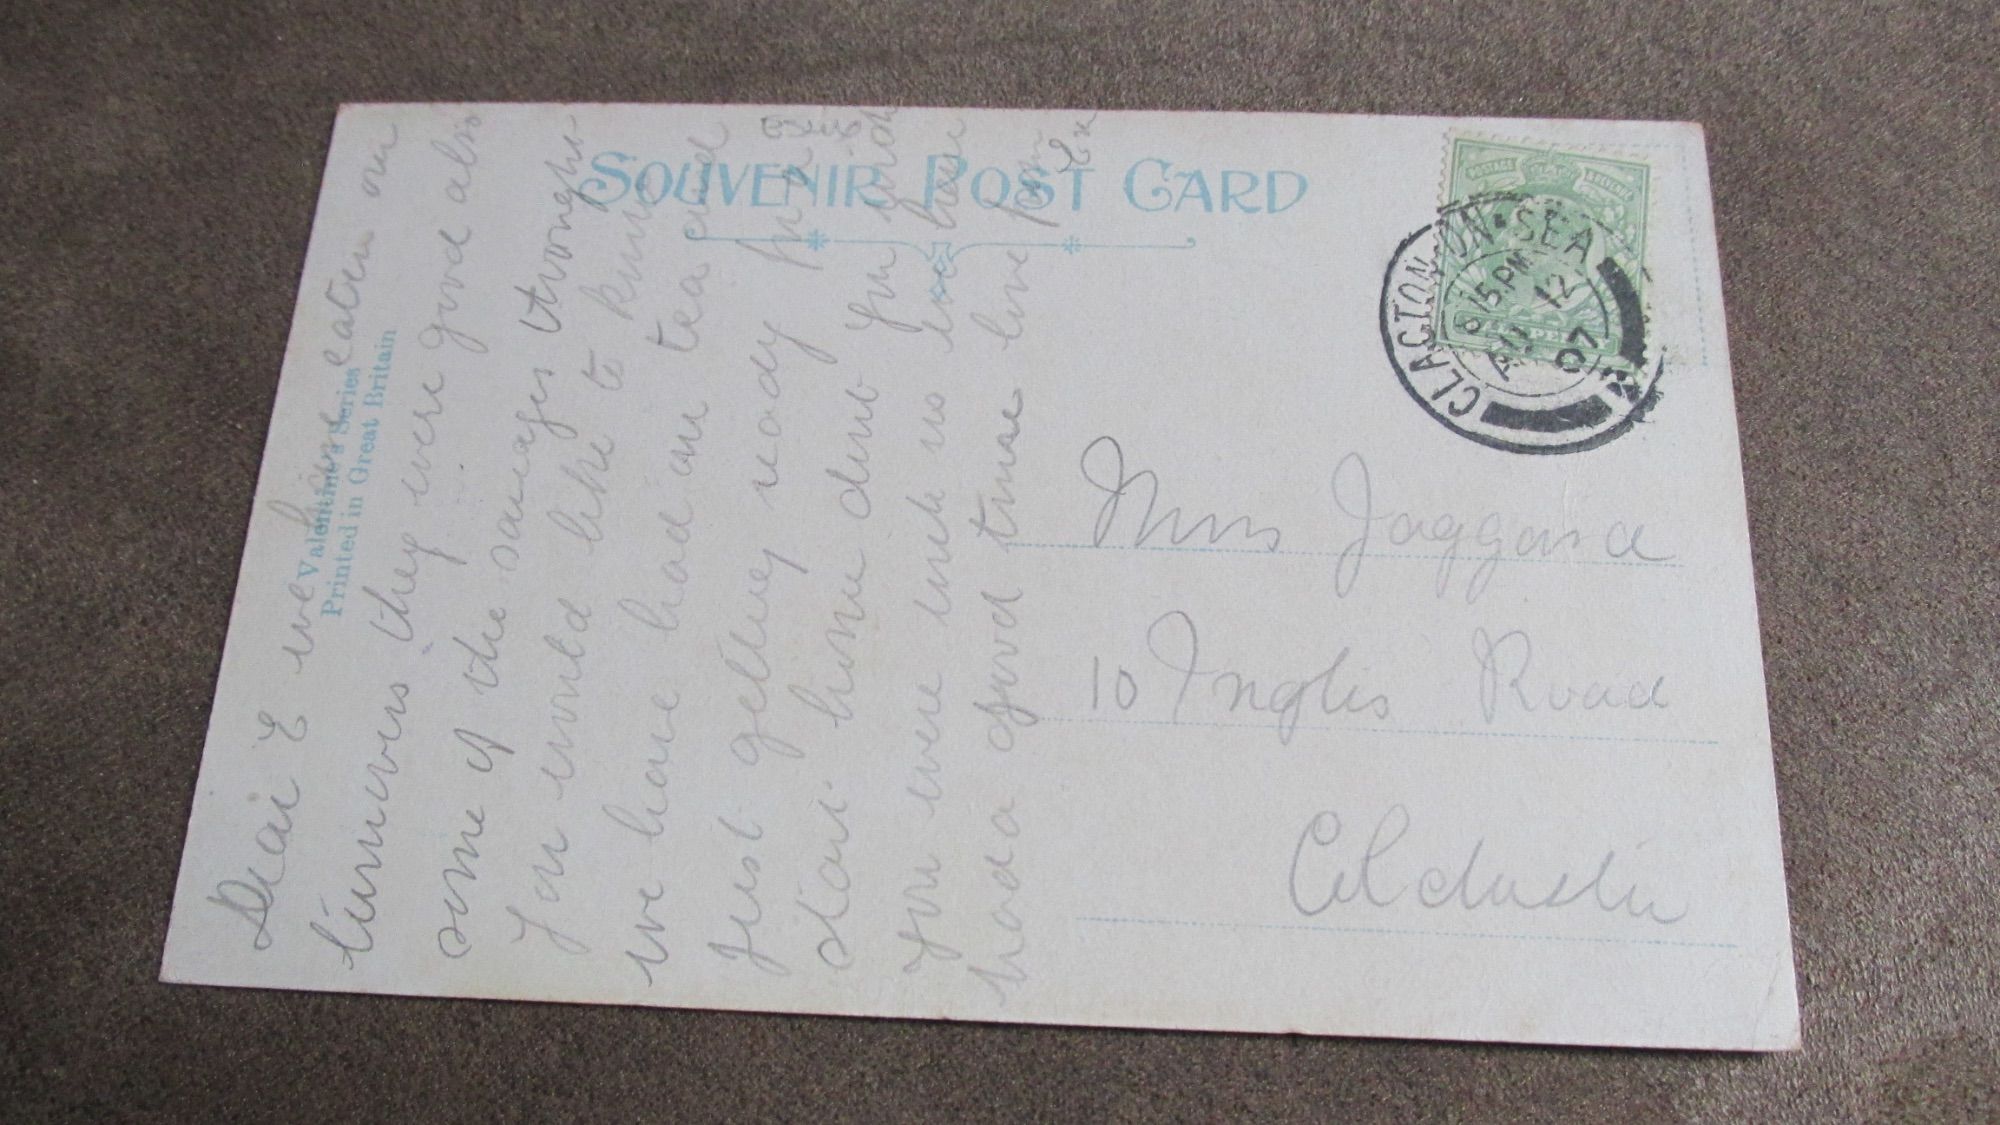 SOUVENIR POST CARD
Valentine's Series
Printed in Great Britain
CLACTON ON SEA
8 15 PM
AU 12
07
Dear E we have eaten our
they were good also
some of the sausages
You would like to know
we have had our tea and
just getting ready for a
dont you wish
you were with us we have
had a good time love from
Miss Jaggard
10 Inglis Road
Colchester